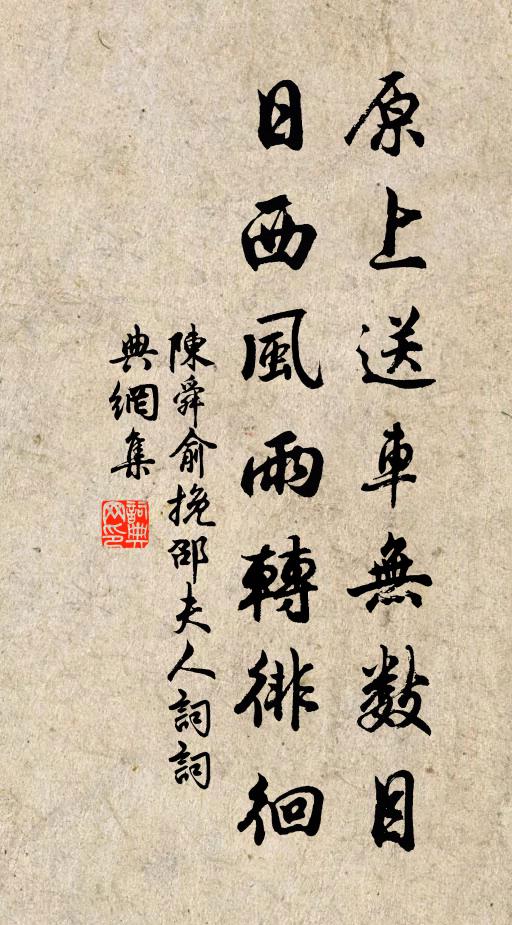 原上送車無數目
日西風雨轉徘徊
陳舜俞挽邵夫人詞詞
典網集
詞典
网印